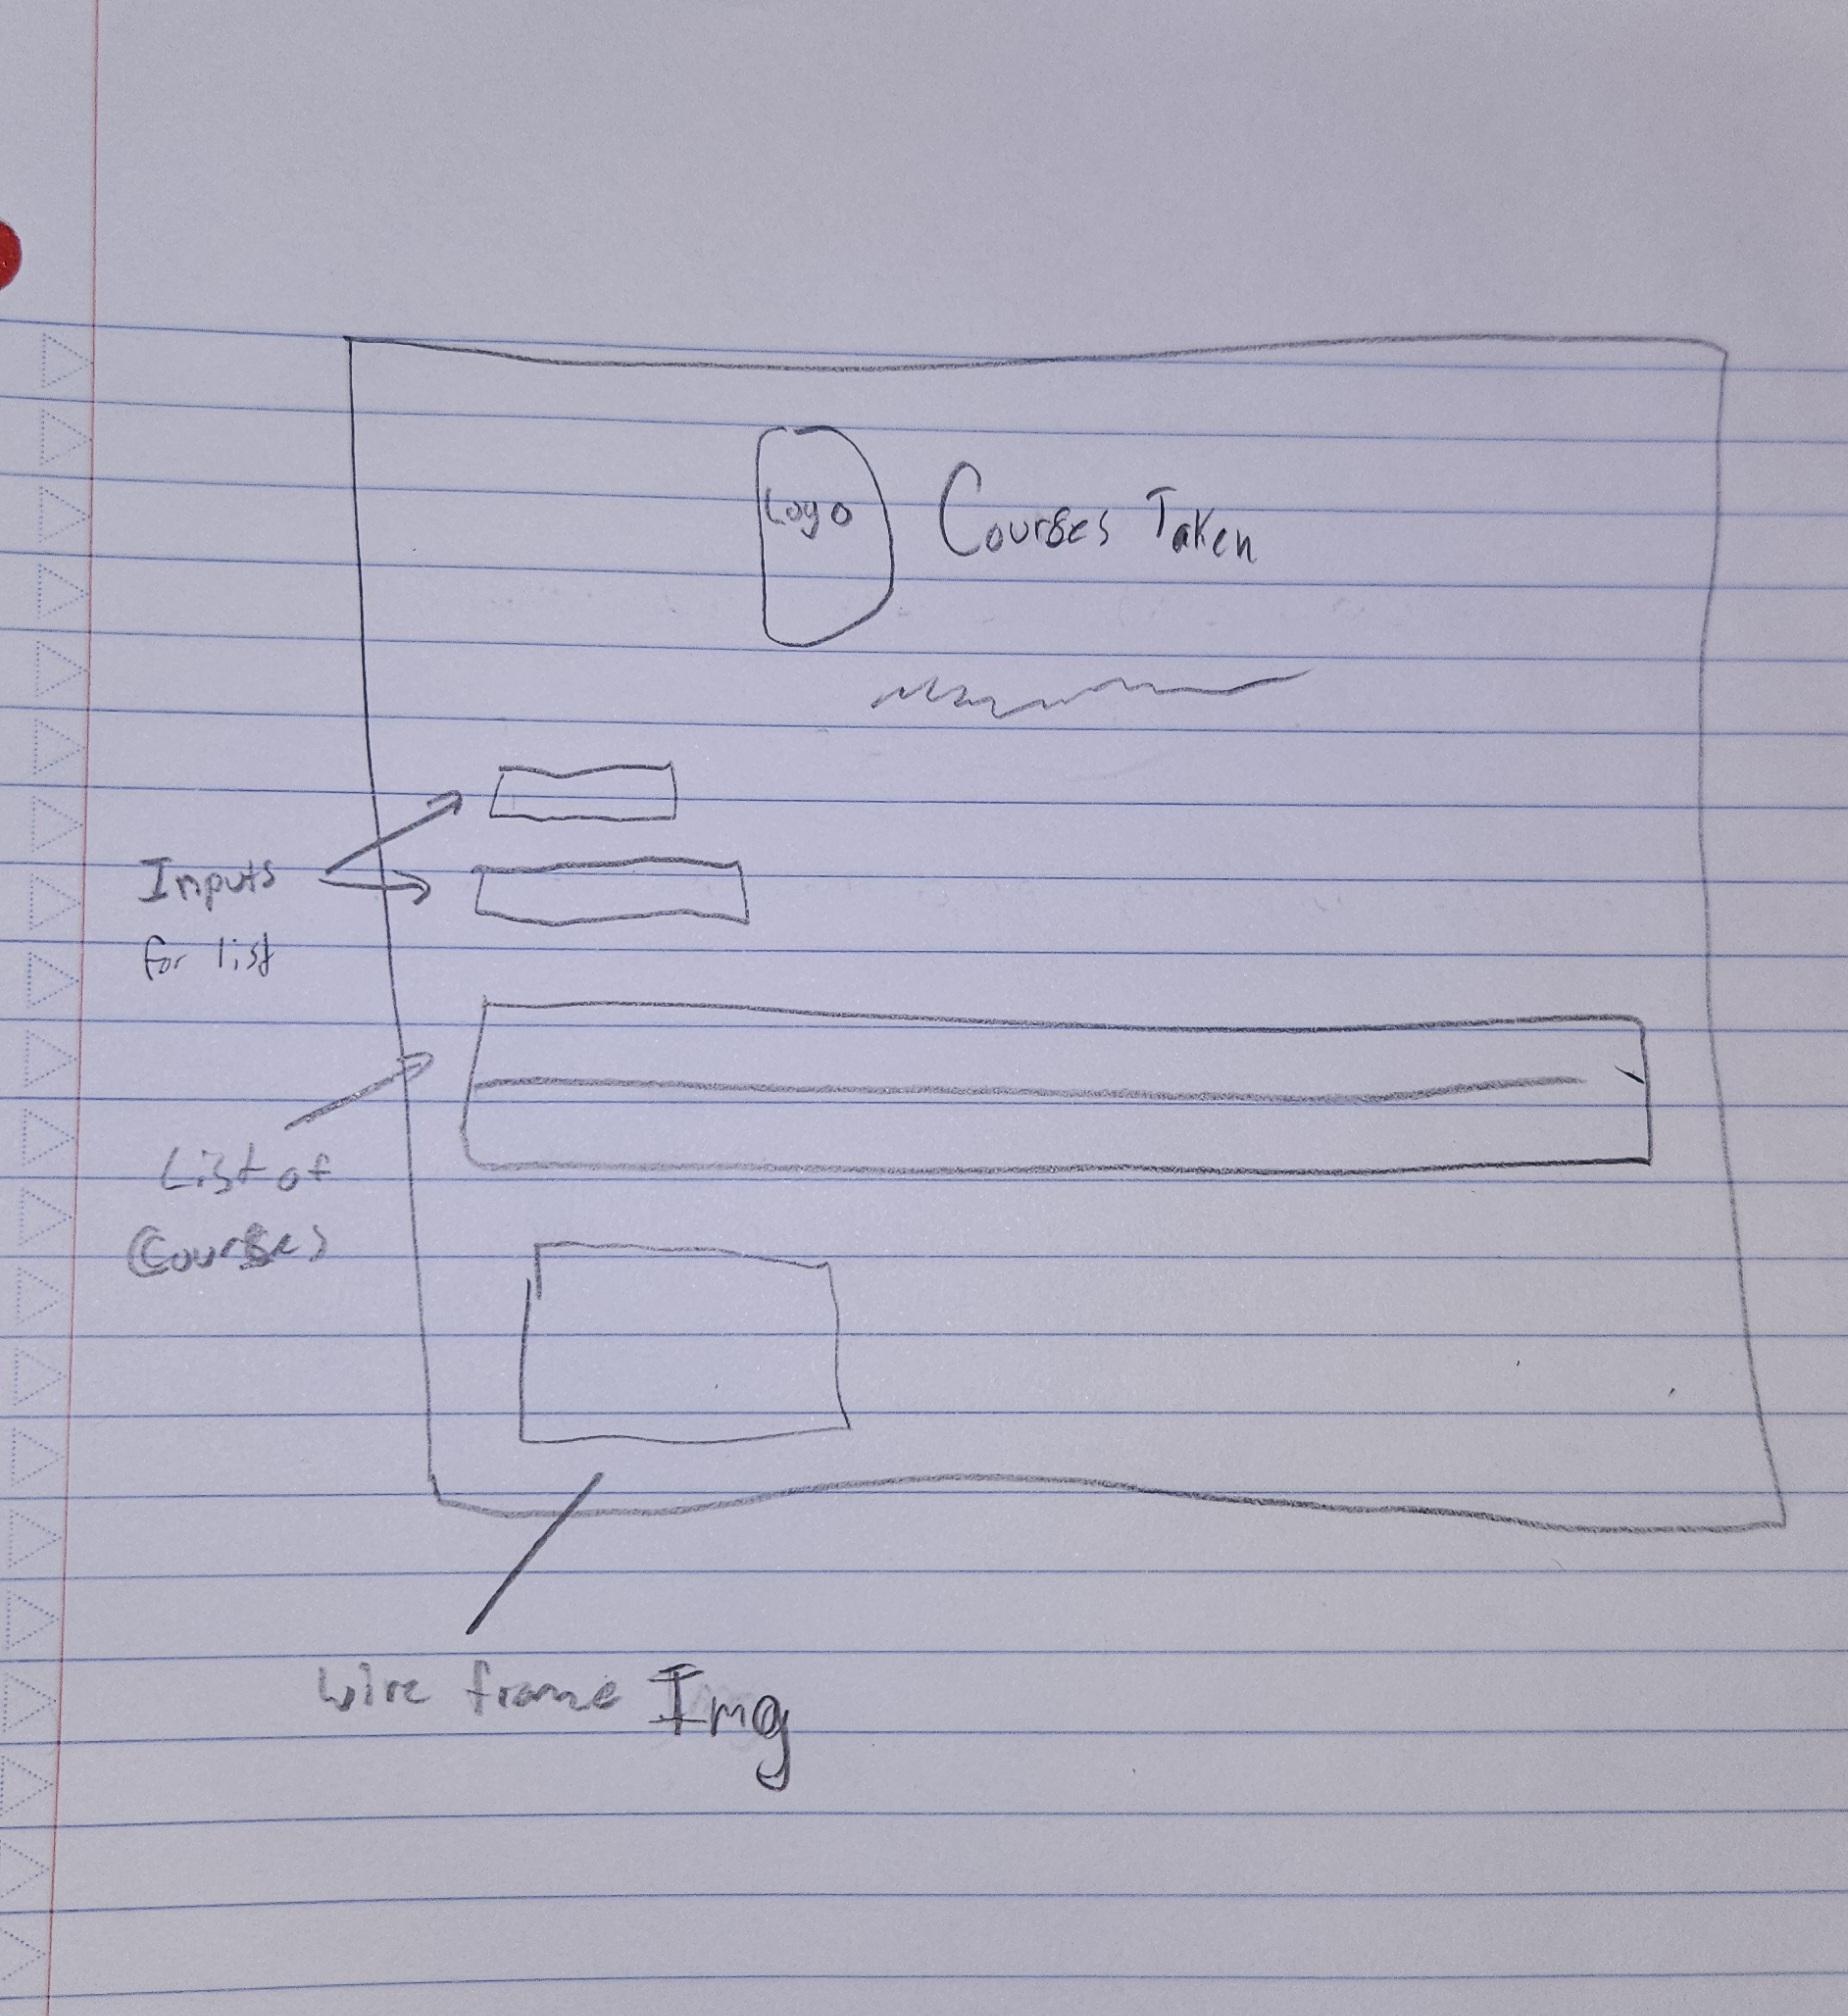 Logo
Courses Taken
Inputs
for list
List of
Courses
Wire frame Img